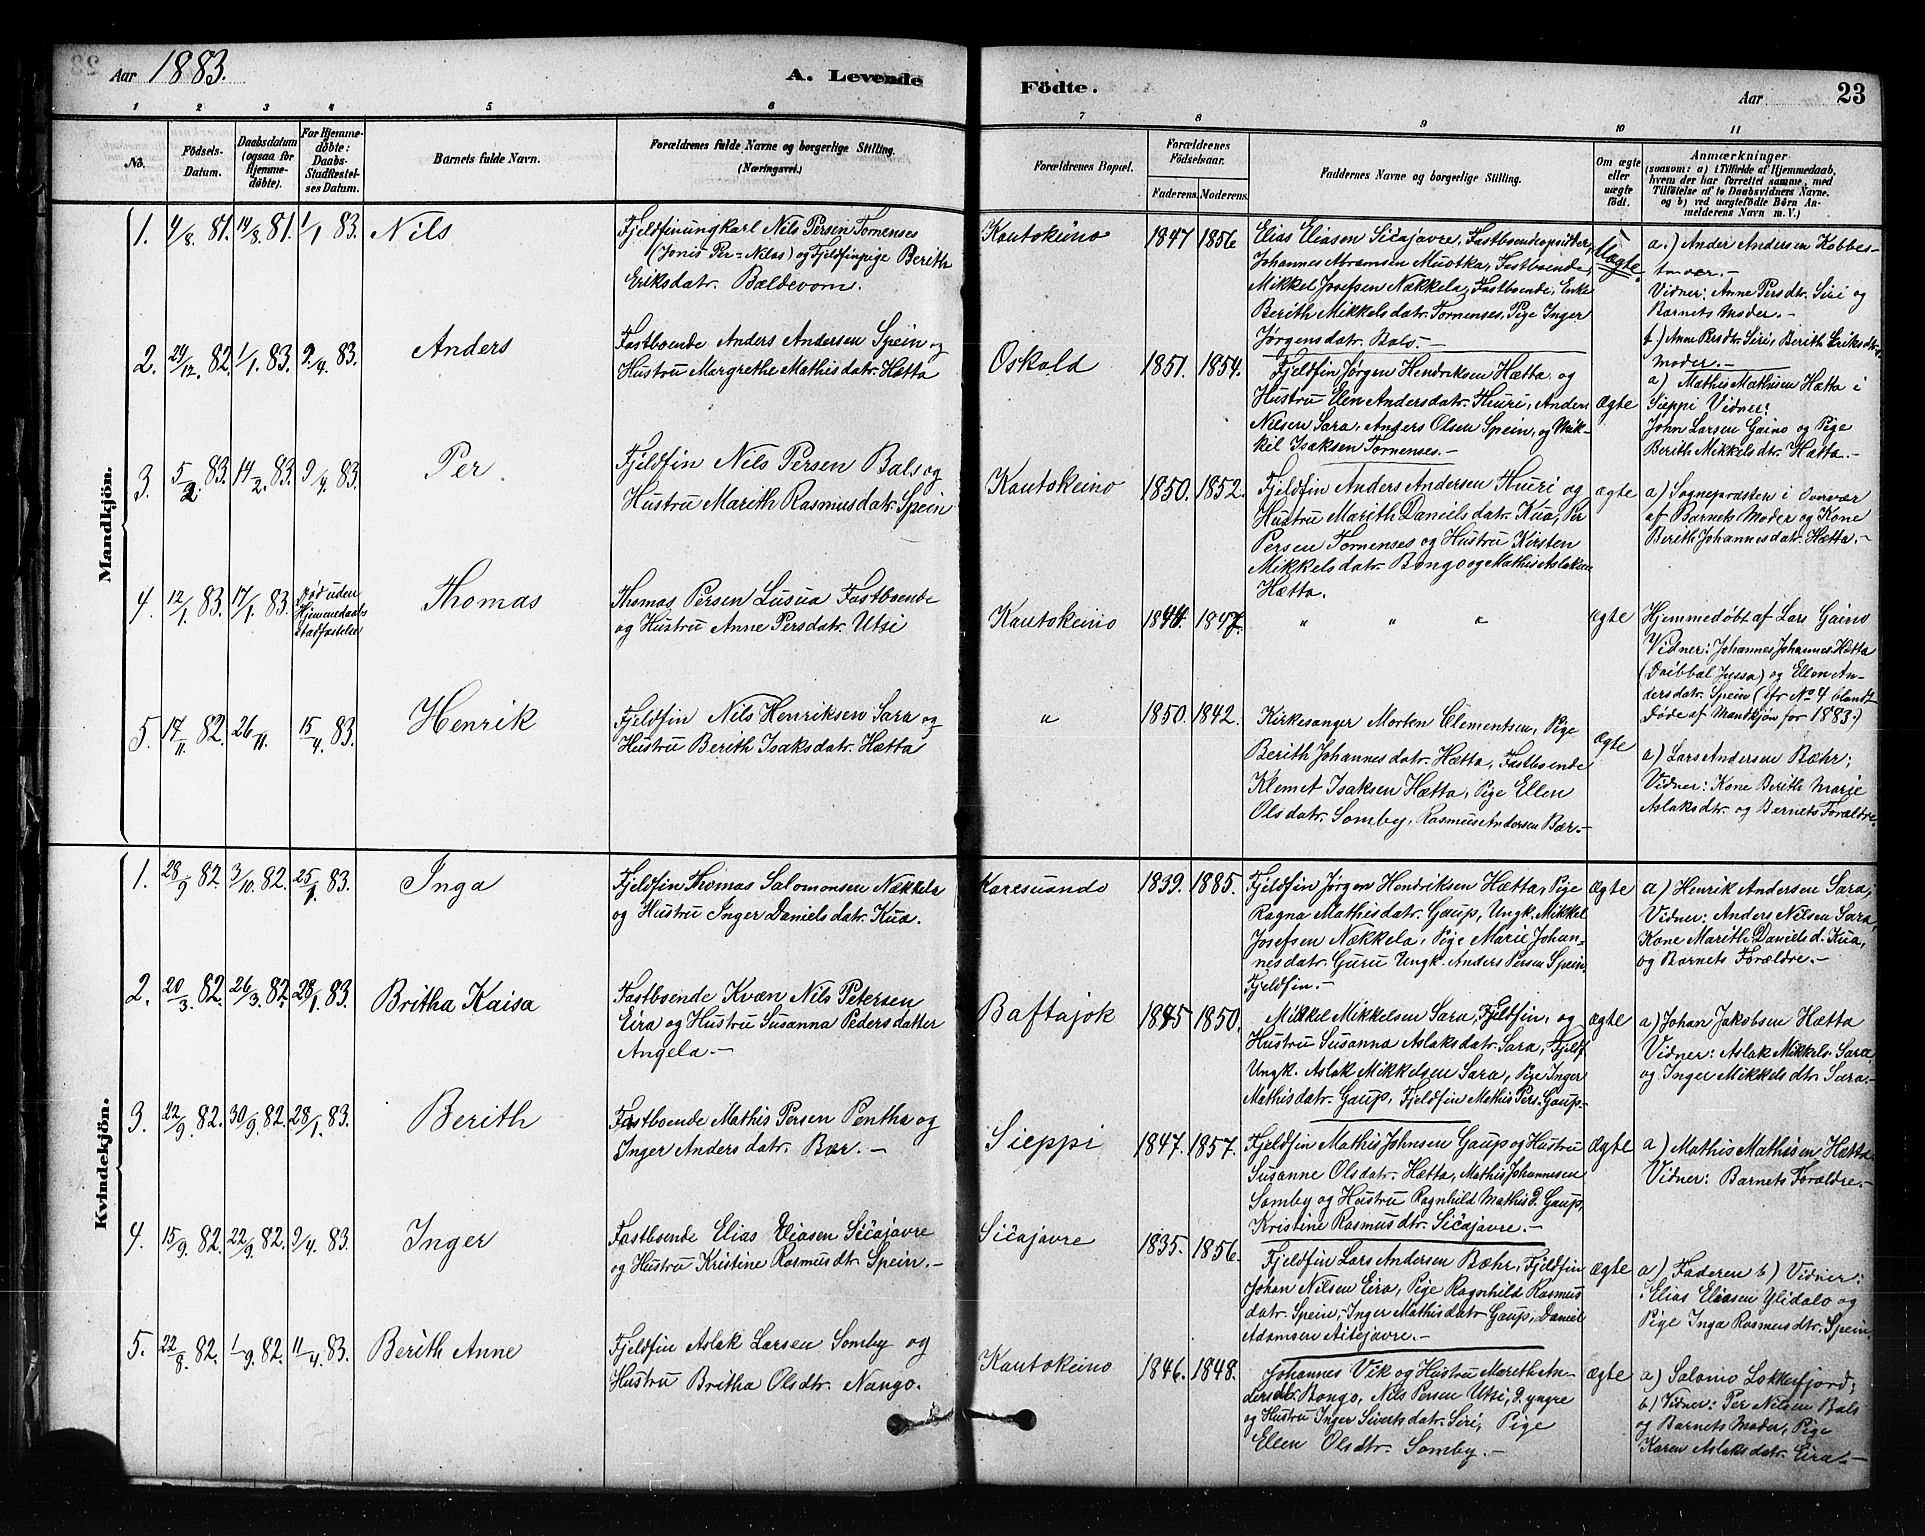 Aar 1883.
A. Levende
Födte.
Aar
23
1
2
3
4
5
6
7
8
9
10
11
No.
Födsels-
Datum.
Daabsdatum
(ogsaa for
Hjemme-
døbte).
For Hjemme-
døbte:
Daabs-
Stadfæstel-
ses Datum.
Barnets fulde Navn.
Forældrenes fulde Navne og borgerlige Stilling.
(Næringsvei.)
Forældrenes Bopæl.
Forældrenes
Fødselsaar.
Faderens.
Moderens.
Faddernes Navne og borgerlige Stilling.
Om ægte
eller
uægte
født.
Anmærkninger
(saasom: a) i Tilfælde af Hjemmedaab,
hvem der har forrettet samme, med
Tilføielse af to Daabsvidners Navne,
og b) ved uægtefødte Börn An-
melderens Navn m. V.)
Mandkjön.
1. 4/8 81. 14/8 81. 1/1 83. Nils
Fjeldfinungkarl Nils Persen Tornenses
(Jonis Per-Nilas) og Fjeldfinpige Berith
Eriksdatr. Baldevom.
Kautokeino 1847 1856
Elias Eliasen Sičajavre, Fastboendeopsidder,
Johannes Abramsen Muotka, Fastboende,
Mikkel Josefsen Nækkela, Fastboende, Enke
Berith Mikkelsdatr. Tornenses, Pige Inger
Jørgensdatr. Bals.-
Uægte.
a.) Ander Andersen Kobbes-
Vidner: Anne Persdtr. Siri og
Barnets Moder.-
b) Anne Prsdtr. Siri, Berith Eriksdtr.
moder.-
2. 24/12 82. 1/1 83. 2/4 83. Anders
Fastboende Anders Andersen Spein og
Hustru Margrethe Mathisdatr. Hætta
Oskald 1851. 1854.
Fjeldfin Jørgen Hendriksen Hætta og
Hustru Elen Andersdatr. Thuri, Anders
Nilsen Sara, Anders Olsen Spein, og Mik-
kel Isaksen Tornenses.-
ægte
a) Mathis Mathisen Hætta i
Sieppi Vidner:
John Larsen Gaino og Pige
Berith Mikkelsdtr. Hætta.-
3. 5/2 83. 14/2 83. 9/4 83. Per
Fjeldfin Nils Persen Bals og
Hustru Marith Rasmusdatr. Spein
Kautokeino 1850. 1852.
Fjeldfin Anders Andersen Thuri og
Hustru Marith Danielsdatr. Kua, Per
Persen Tornenses og Hustru Kirsten
Mikkelsdatr. Bongo og Mathis Aslaksen
Hætta.
ægte
a) Sognepræsten i Overvær
af Barnets Moder og Kone
Berith Johannesdatr. Hætta.-
4. 12/1 83. 17/1 83. Død uden
Hjemmedaabs
stadfæstelse
Thomas
Thomas Persen Lusua Fastboende
og Hustru Anne Persdatr. Utsi
Kautokeino 1844. 1847.
" " "
ægte
Hjemmedøbt af Lars Gaino
Vidner: Johannes Johannes Hætta
(Jussa) og Ellen An-
dersdatr. Spein (cfr No 4 blandt
Døde af Mandkjøn for 1883.)
5. 17/11 82. 26/11. 15/4 83. Henrik
Fjeldfin Nils Henriksen Sara og
Hustru Berith Isaksdatr. Hætta
" 1850. 1842.
Kirkesanger Morten Clementsen, Pige
Berith Johannesdatr. Hætta, Fastboende
Klemet Isaksen Hætta, Pige Ellen
Olsdatr. Somby, Rasmus Andersen Bær.-
ægte
a) Lars Andersen Bæhr;
Vidner: Kone Berith Marie
Aslaksdtr. og Barnets Forældre.
Kvindekjön.
1. 28/9 82 3/10 82. 25/1 83. Inga
Fjeldfin Thomas Salomonsen Nækkela
og Hustru Inger Danielsdatr. Kua.
Karesuando 1839. 1885.
Fjeldfin Jørgen Hendriksen Hætta, Pige
Ragna Mathisdatr. Gaup, Ungk. Mikkel
Josefsen Nækkela, Pige Marie Johan-
nesdatr. Guru Ungk. Anders Persen Spein,
Fjeldfin.-
ægte
a) Henrik Andersen Sara;
Vidner: Anders Nilsen Sara,
Kone Marith Daniels d. Kua,
og Barnets Forældre.-
2. 20/3 82. 26/3 82. 28/1 83. Britha Kaisa
Fastboende Kvæn Nils Petersen
Eira og Hustru Susanna Pedersdatter
Angela.-
Baftajok 1845 1850.
Mikkel Mikkelsen Sara, Fjeldfin, og
Hustru Susanna Aslaksdatr. Sara, Fjeldf.
Ungk. Aslak Mikkelsen Sara, Pige Inger
Mathisdatr. Gaup, Fjeldfin Mathis Pers. Gaup.
ægte
a) Johan Jakobsen Hætta
Vidner: Aslak Mikkels. Sara
og Inger Mikkelsdtr. Sara.-
3. 22/9 82. 30/9 82. 28/1 83. Berith
Fastboende Mathis Persen Pentha og
Inger Andersdatr. Bær.-
Sieppi 1847. 1857.
Fjeldfin Mathis Johnsen Gaup og Hustru
Susanne Olsdatr. Hætta, Mathis Johannesen
Somby og Hustru Ragnhild Mathis D. Gaup,
Kristine Rasmusdtr. Sičajavre.-
ægte
a) Mathis Mathisen Hætta.
Vidner: Barnets Forældre.-
4. 15/9 82. 22/9 82. 2/4 83. Inger
Fastboende Elias Eliasen Sičajavre
og Hustru Kristine Rasmusdtr. Spein.-
Sičajavre 1835. 1856.
Fjeldfin Lars Andersen Bæhr, Fjeldfin
Johan Nilsen Eira, Pige Ragnhild Rasmus
datr. Spein, Inger Mathisdatr. Gaup, Daniel
Adamsen Aitejavre.-
ægte
a) Faderen b) Vidner:
Elias Eliasen Ylidalo og
Pige Inga Rasmusdtr. Spein
5. 22/8 82. 1/9 82. 11/4 83. Berith Anne
Fjeldfin Aslak Larsen Somby og
Hustru Britha Olsdtr. Nango.
Kautokeino 1846. 1848.
Johannes Vik og Hustru Mareth An-
dersdtr. Bongo, Nils Persen Utsi, d. yngre
og Hustru Inger Sivertsdatr. Siri, Pige
Ellen Olsdtr. Somby.-
ægte
a) Salomo Lokkefjord;
b) Vidner: Per Nilsen Bals
og Barnets Moder, Pige
Karen Aslaksdatr. Eira.-